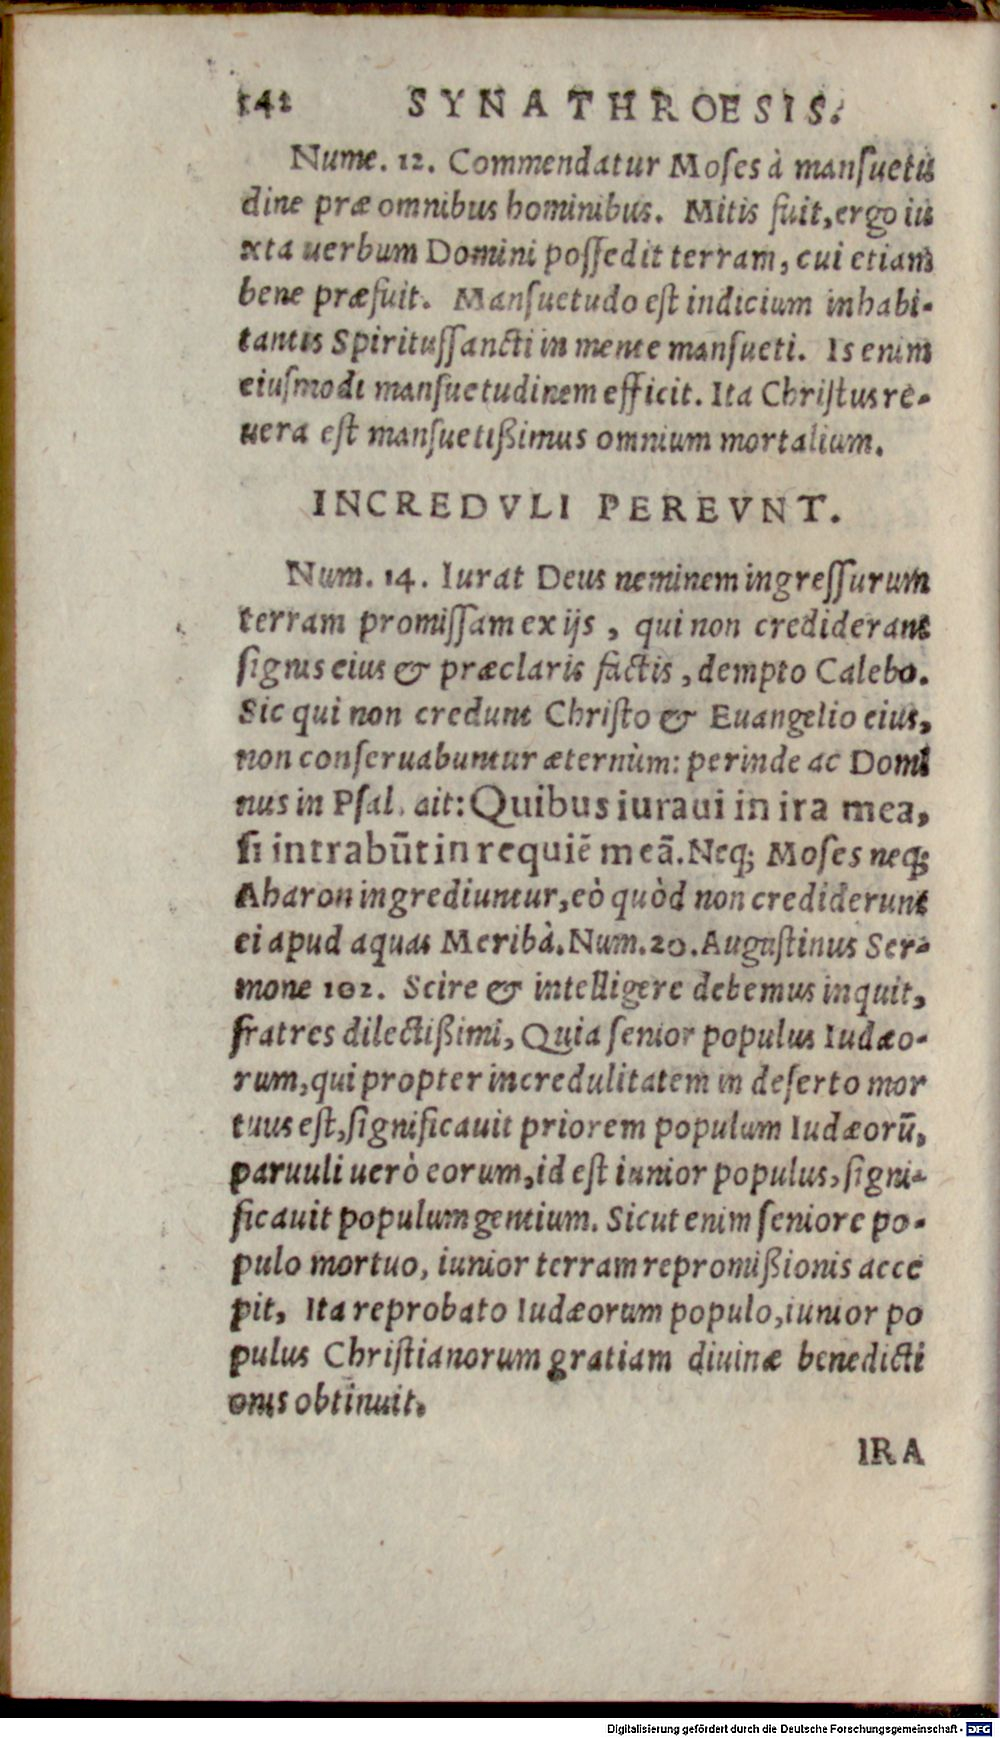 142 SYNATHROESIS.
Nume. 12. Commendatur Moses à mansuetu
dine præ omnibus hominibus. Mitis fuit, ergo iu
xta uerbum Domini possedit terram, cui etiam
bene præfuit. Mansuetudo est indicium inhabi-
tantis Spiritussancti in mente mansueti. Is enim
eiusmodi mansuetudinem efficit. Ita Christus re-
uera est mansuetißimus omnium mortalium.
INCREDVLI PEREVNT.
Num. 14. Iurat Deus neminem ingressurum
terram promissam ex ijs, qui non crediderant
signis eius & præclaris factis, dempto Calebo.
Sic qui non credunt Christo & Euangelio eius,
non conseruabuntur æternùm: perinde ac Domi
nus in Psal. ait: Quibus iuraui in ira mea,
si intrabūt in requiē meā. Neq; Moses neq;
Aharon ingrediuntur, eò quòd non crediderunt
ei apud aquas Meribà. Num. 20. Augustinus Ser-
mone 102. Scire & intelligere debemus inquit,
fratres dilectißimi, Quia senior populus Iudæo-
rum, qui propter incredulitatem in deserto mor
tuus est, significauit priorem populum Iudæorū,
paruuli uerò eorum, id est iunior populus, signi-
ficauit populum gentium. Sicut enim seniore po-
pulo mortuo, iunior terram repromißionis acce
pit, Ita reprobato Iudæorum populo, iunior po
pulus Christianorum gratiam diuinæ benedicti
onis obtinuit.
IRA
Digitalisierung gefördert durch die Deutsche Forschungsgemeinschaft - DFG